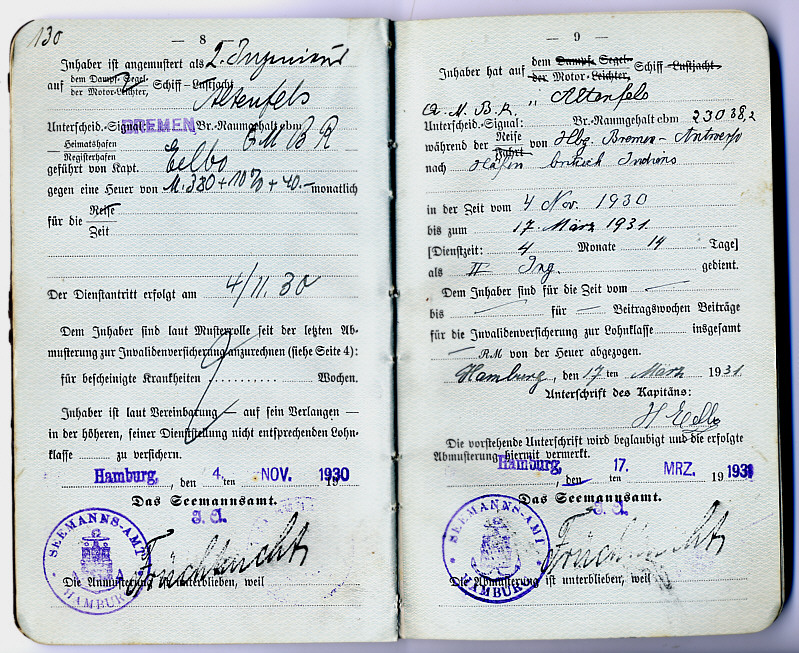 130
— 8
Inhaber ist angemustert als 2. Ingenieur
auf dem Dampf- Segel- Schiff – Lustjacht
der Motor-Leichter,
Altenfels
Unterscheid.-Signal: BREMEN Br.-Raumgehalt cbm
Heimatshafen Q M B R
Registerhafen
geführt von Kapt. Eelbo
gegen eine Heuer von M. 380 + 10% + 40.– monatlich
für die Reise
Zeit
Der Dienstantritt erfolgt am 4/11. 30
Dem Inhaber sind laut Musterrolle seit der letzten Ab-
musterung zur Invalidenversicherung anzurechnen (siehe Seite 4):
für bescheinigte Krankheiten .......... Wochen.
Inhaber ist laut Vereinbarung — auf sein Verlangen —
in der höheren, seiner Dienststellung nicht entsprechenden Lohn-
klasse ........ zu versichern.
Hamburg, den 4. ten NOV. 1930
19
Das Seemannsamt.
J. A.
SEEMANNS-AMT HAMBURG
Früchtenicht
Die Anmusterung ist unterblieben, weil
— 9 —
Inhaber hat auf dem Dampf- Segel- Schiff – Lustjacht
der Motor-Leichter,
„ Altenfels
Q. M. B. R.
Unterscheid.-Signal: Br.-Raumgehalt cbm 23038,2
während der Reise von Hbg. Bremen – Antwerp
Fahrt
nach Häfen Indiens
in der Zeit vom 4 Nov. 1930
bis zum 17. März 1931.
[Dienstzeit: 4 Monate 14 Tage]
als II Ing. gedient.
Dem Inhaber sind für die Zeit vom —
bis — für — Beitragswochen Beiträge
für die Invalidenversicherung zur Lohnklasse insgesamt
— RM von der Heuer abgezogen.
Hamburg, den 17 ten März 1931.
Unterschrift des Kapitäns:
H Eelbo
Die vorstehende Unterschrift wird beglaubigt und die erfolgte
Abmusterung hiermit vermerkt.
Hamburg, den 17. ten MRZ. 1931
Das Seemannsamt.
J. A.
SEEMANNS-AMT HAMBURG
Früchtenicht
Die Abmusterung ist unterblieben, weil